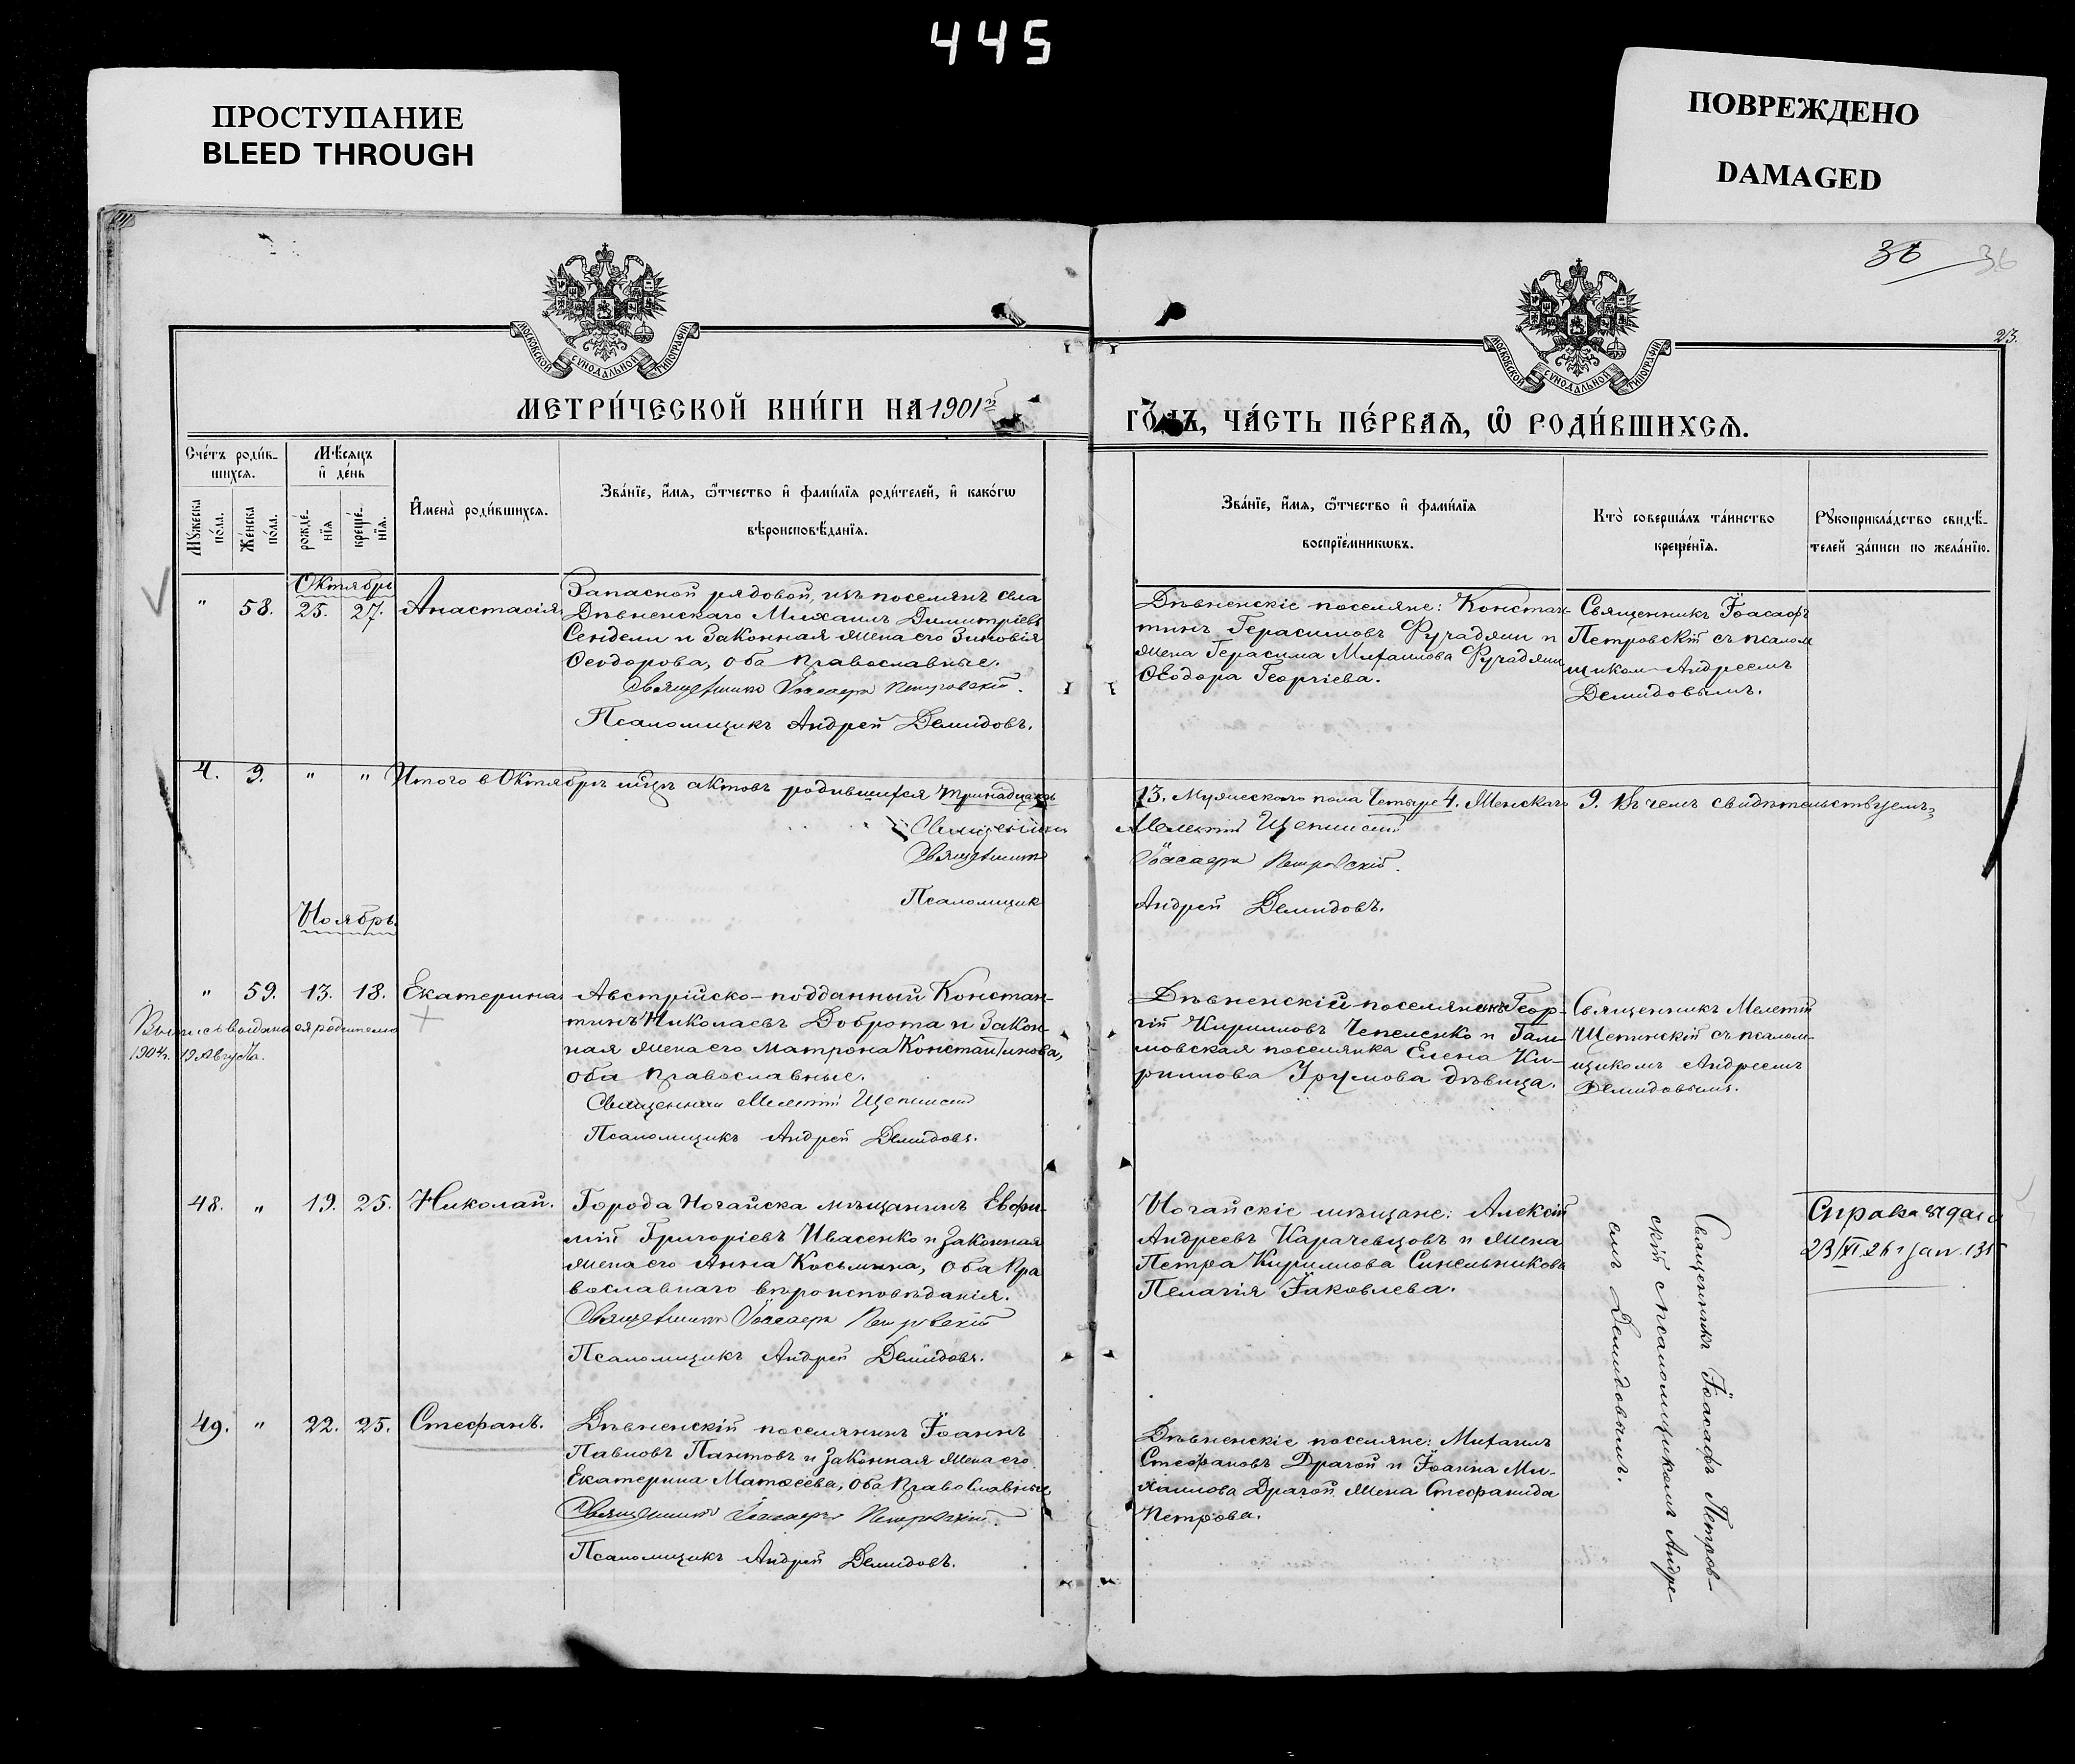 445
ПРОСТУПАНИЕ
BLEED THROUGH
ПОВРЕЖДЕНО
DAMAGED
36
36
23.
МОСКОВСКОЙ СУНОДАЛЬНОЙ ТИПОГРАФІИ
МОСКОВСКОЙ СУНОДАЛЬНОЙ ТИПОГРАФІИ
МЕТРИ́ЧЕСКОЙ КНИ́ГИ НА 1901й
ГО́ДЪ, ЧА́СТЬ ПЕ́РВАѦ, Ѡ҆ РОДИ́ВШИХСѦ.
Сче́тъ роди́в-
шихся.
Мѣ́сяцъ
и҆ де́нь
Мꙋжеска по́ла.
Же́нска по́ла.
рожде́-
нїя
креще́-
нїя.
И҆мена̀ роди́вшихся.
Зва́нїе, и҆́мя, ѻ҆́тчество и҆ фами́лїя роди́телей, и҆ како́гѡ
вѣроисповѣ́данїя.
Зва́нїе, и҆́мя, ѻ҆́тчество и҆ фами́лїя
воспрїе́мникѡвъ.
Кто̀ соверша́лъ та́инство
креще́нїя.
Рꙋкоприкла́дство свидѣ́-
телей за́писи по жела́нїю.
Октябрь
" 58. 25. 27. Анастасія
Запасной рядовой, изъ поселянъ села
Дѣвненскаго Михаилъ Димитріевъ
Сендели и законная жена его Зиновія
Ѳеодорова, оба православные.
Священникъ Іоасафъ Петровскій.
Псаломщикъ Андрей Демидовъ.
Дѣвненскіе поселяне: Констан-
тинъ Герасимовъ Фучаджи и
жена Герасима Михаилова Фучаджи
Ѳеодора Георгіева.
Священникъ Іоасафъ
Петровскій съ псалом
щиком Андреемъ
Демидовымъ.
4. 9. " " Итого в Октябрѣ мѣцѣ актовъ родившихся тринадцать
13. Мужескаго пола Четыре 4. Женскаго 9. Въ чемъ свидѣтельствуемъ:
Священникъ Мелетій Щепинскій
Священникъ Іоасафъ Петровскій.
Псаломщик Андрей Демидовъ.
Ноябрь.
" 59. 13. 18. Екатерина
Выпись выдана ея родителю
1904г. 19 Августа.
Австрійско-подданный Констан-
тинъ Николаевъ Доброта и закон-
ная жена его Матрона Константинова,
оба православные.
Священникъ Мелетій Щепинскій
Псаломщикъ Андрей Демидовъ.
Дѣвненскій поселянинъ Геор-
гій Кирилловъ Чепеленко и Гам-
мовская поселянка Елена Ки-
риллова Урумова дѣвица.
Священникъ Мелетій
Щепинскій съ псалом-
щикомъ Андреемъ
Демидовымъ.
48. " 19. 25. Николай.
Города Ногайска мѣщанинъ Евфи-
мій Григоріевъ Ивасенко и законная
жена его Анна Косьмина, оба пра
вославнаго вѣроисповѣданія.
Священникъ Іоасафъ Петровскій
Псаломщикъ Андрей Демидовъ.
Ногайскіе мѣщане: Алексій
Андреевъ Карачевцовъ и жена
Петра Кириллова Синельникова
Пелагія Іаковлева.
Справка выдана
23/XI. 26 г
49. " 22. 25. Стефанъ.
Дѣвненскій поселянинъ Іоаннъ
Павловъ Пантовъ и законная жена его
Екатерина Матѳеева, оба православные
Священникъ Іоасафъ Петровскій.
Псаломщикъ Андрей Демидовъ.
Дѣвненскіе поселяне: Михаилъ
Стефановъ Драгой и Іоанна Ми-
хаилова Драгой жена Стефанида
Петрова.
Священникъ Іоасафъ Петров-
скій с псаломщикомъ Андре-
емъ Демидовымъ.